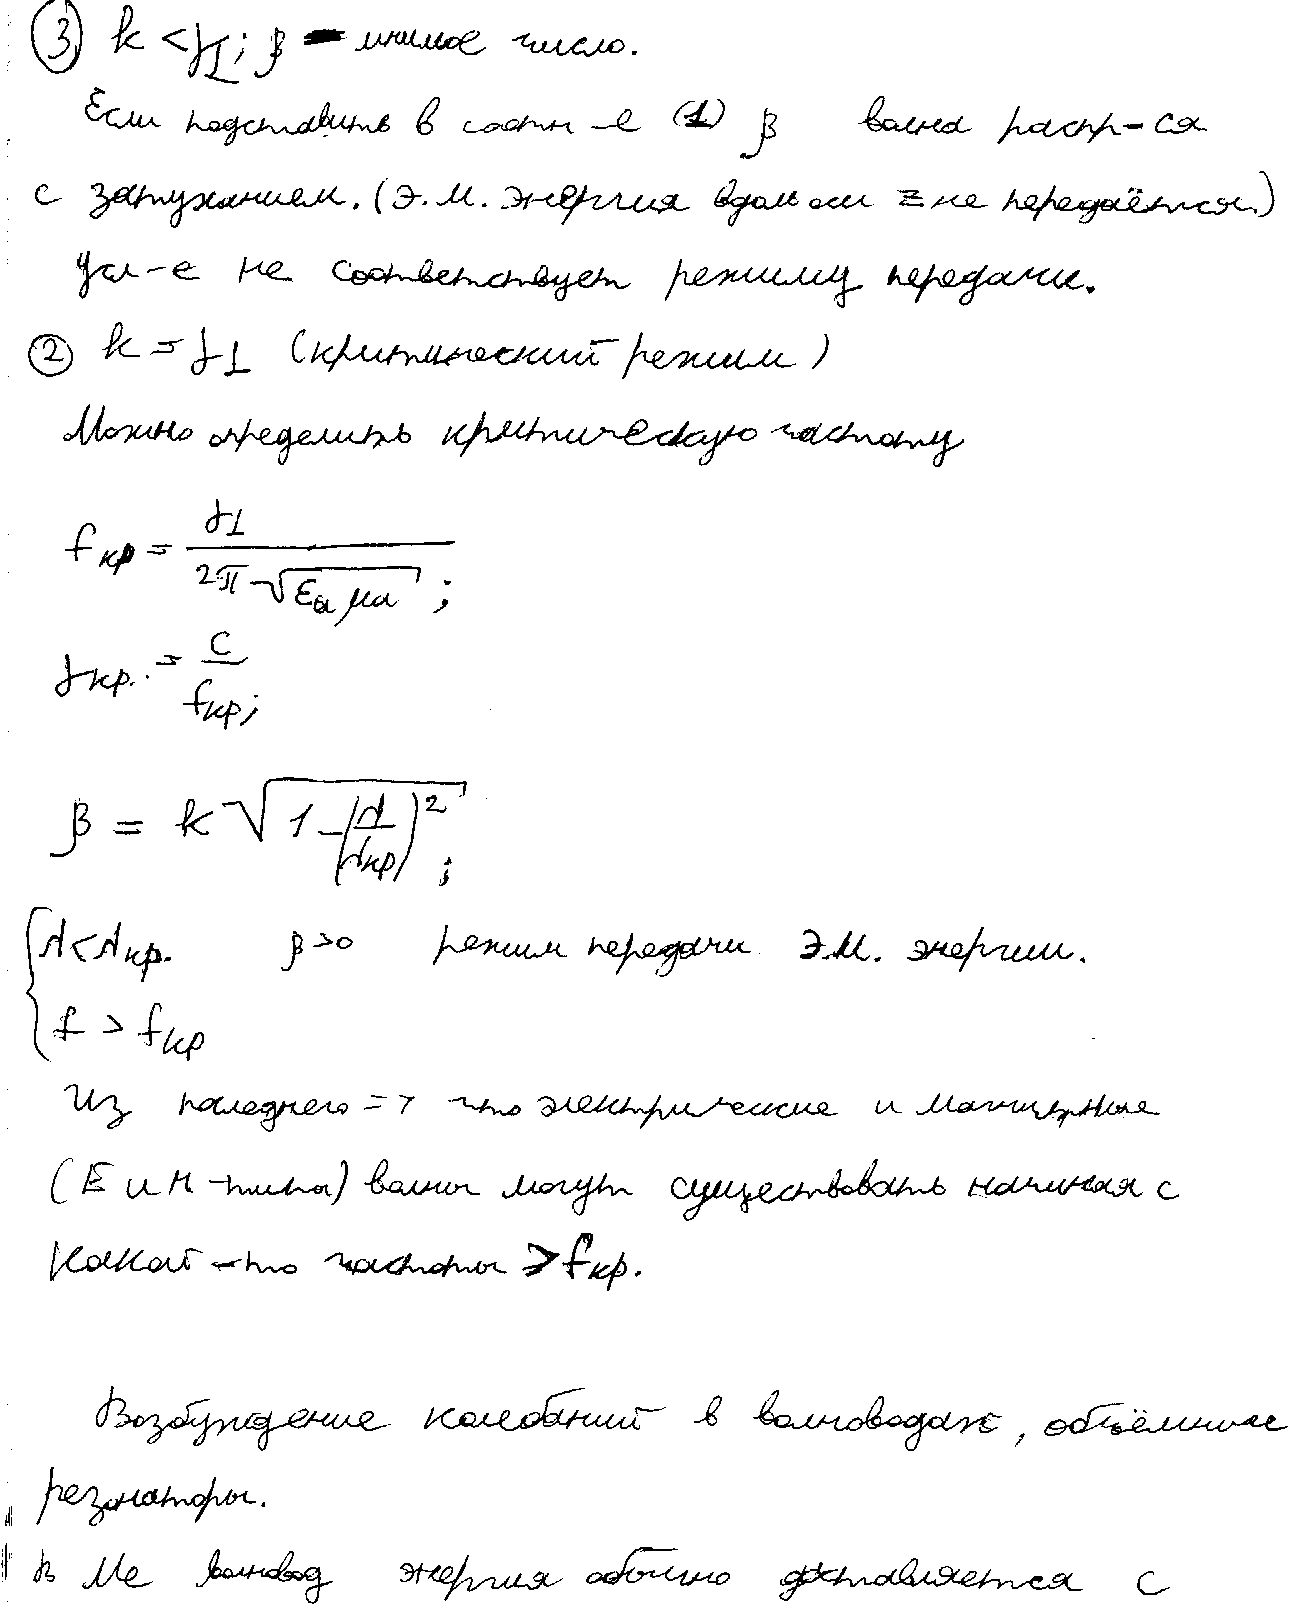 ③ k < γ⊥; β – мнимое число.
Если подставить в соотн-е (1) β волна распр-ся
с затуханием. (Э.М. энергия вдоль оси z не передаётся.)
Усл-е не соответствует режиму передачи.
② k = γ⊥ (критический режим)
Можно определить критическую частоту
fкр = γ⊥ / (2π √(εa μa));
λкр. = c / fкр;
β = k √(1 – (λ/λкр)²);
{ λ < λкр. β>0 режим передачи Э.М. энергии.
f > fкр
Из последнего => что электрические и магнитные
(E и H -типа) волны могут существовать начиная с
какой-то частоты > fкр.
Возбуждение колебаний в волноводах, объёмные
резонаторы.
В Ме волновод энергия обычно доставляется с